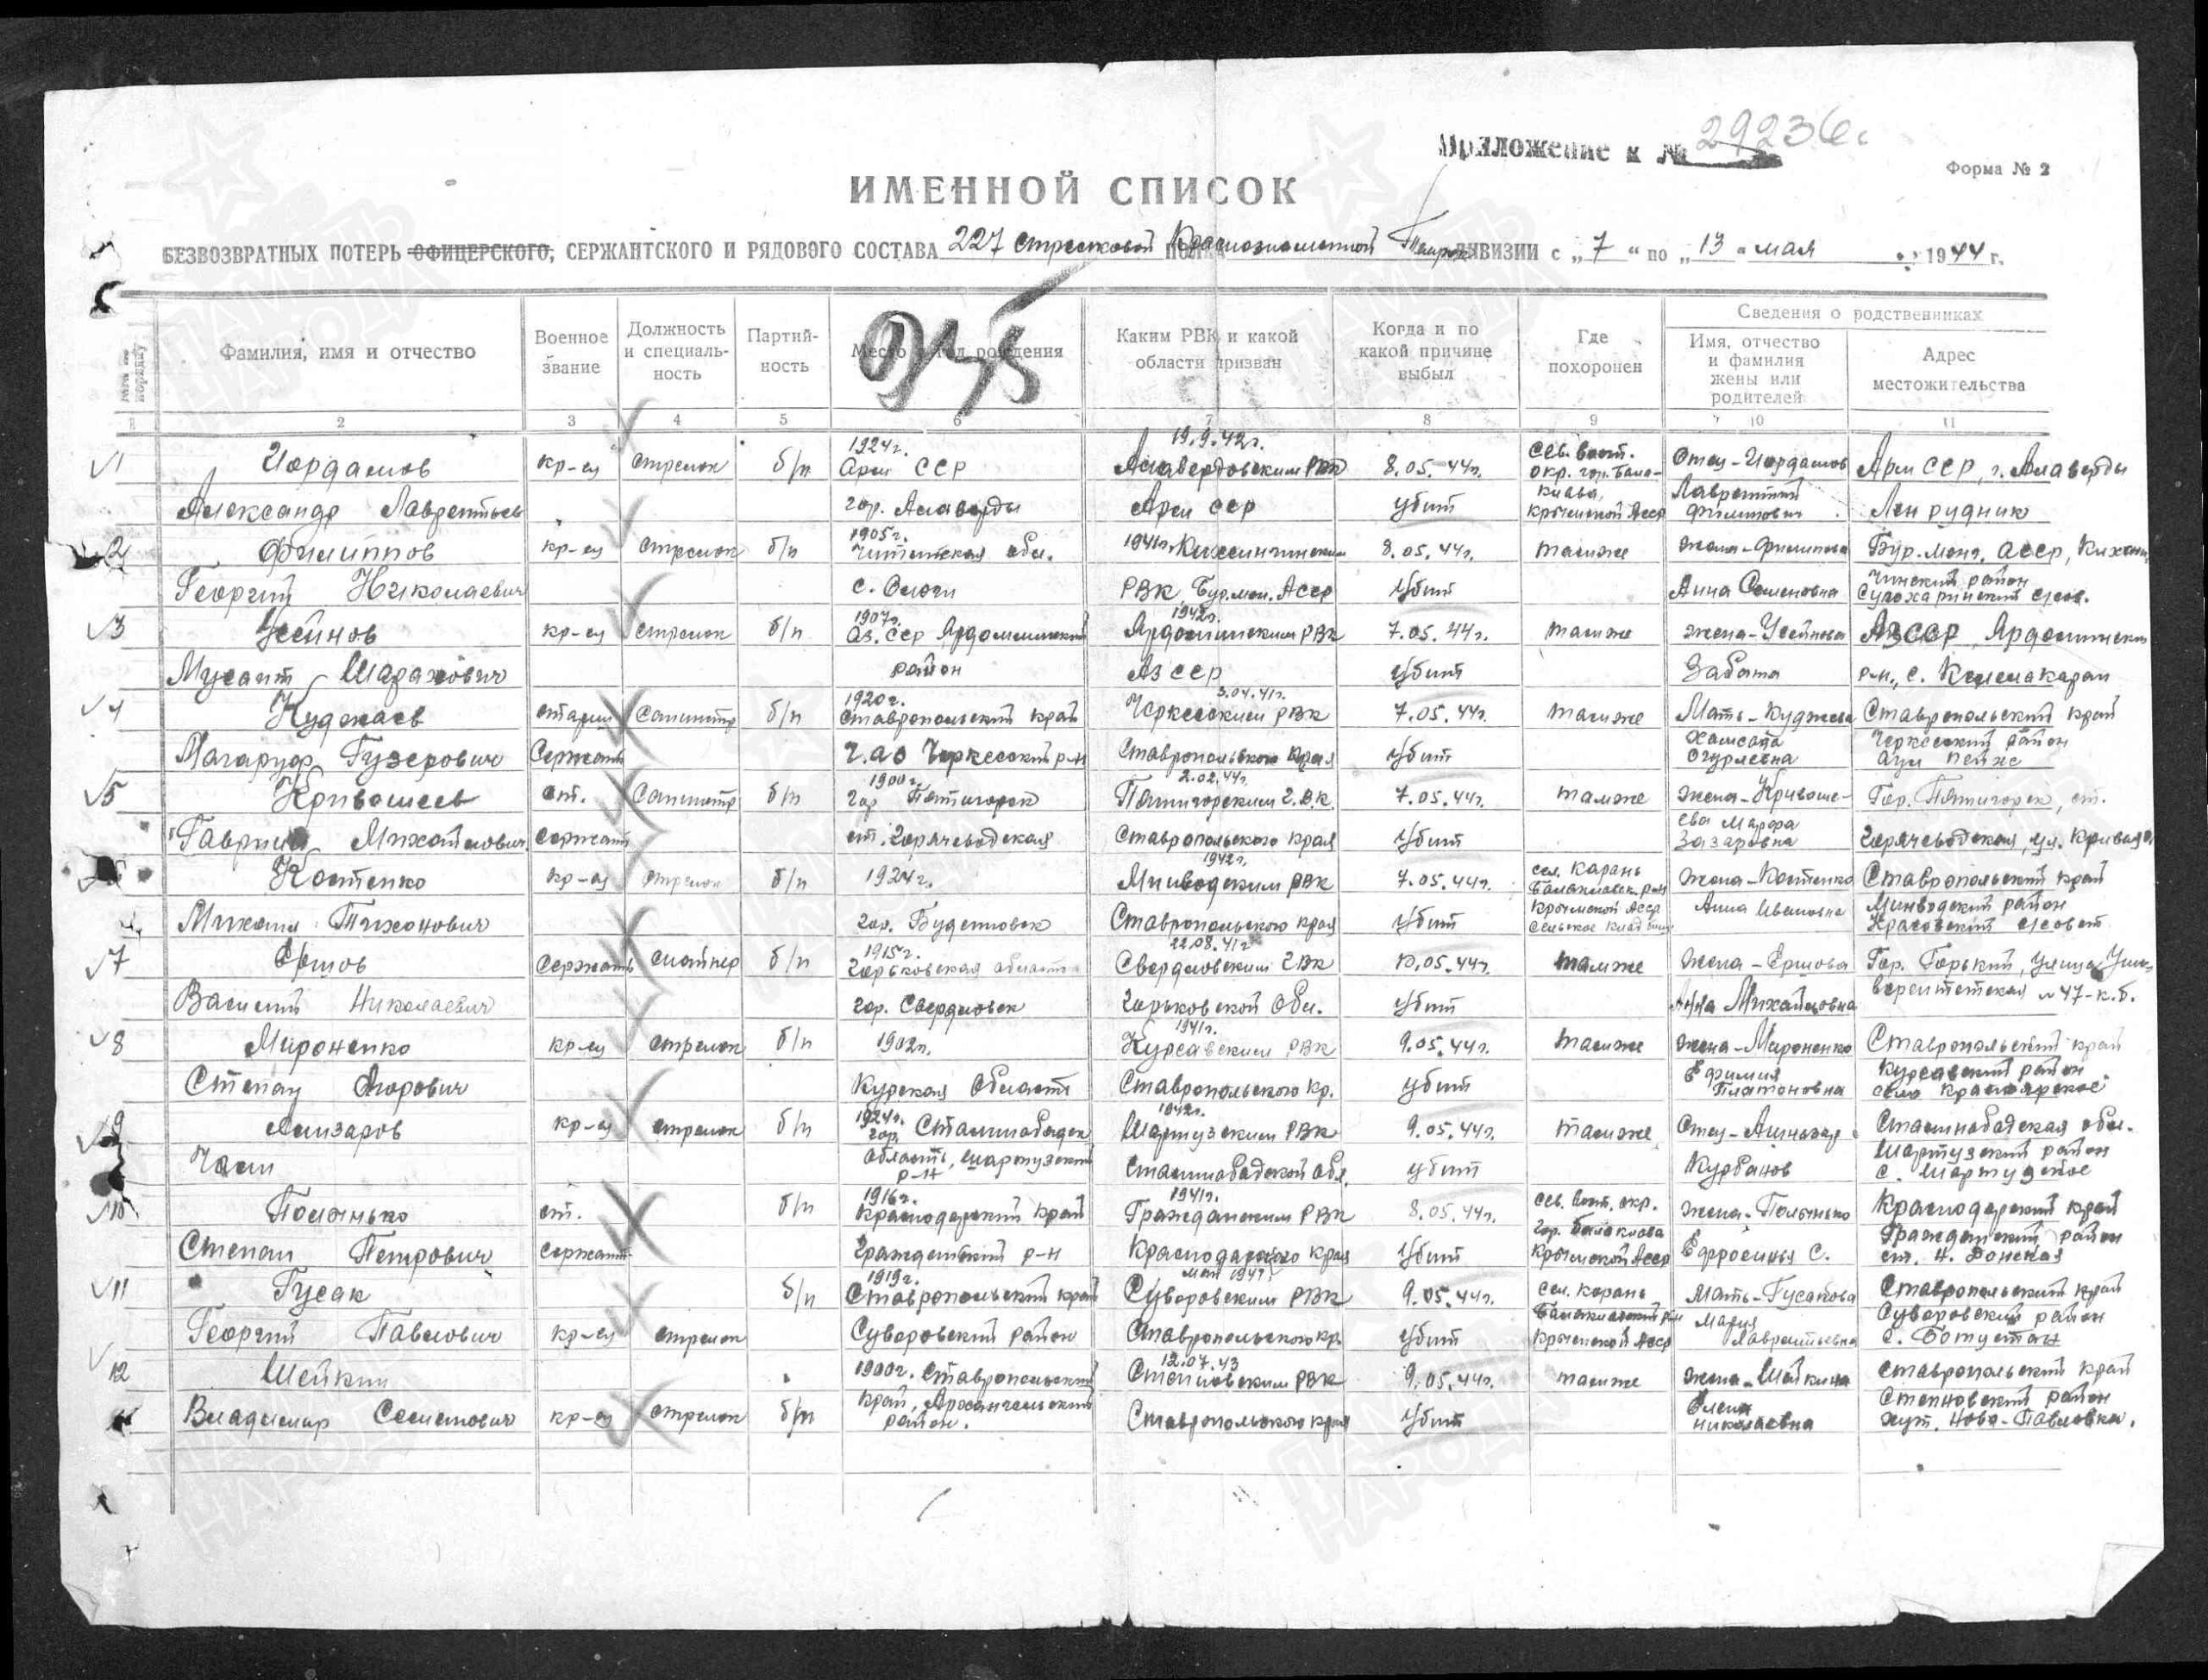 Приложение к № 29236с
Форма № 2
ИМЕННОЙ СПИСОК
БЕЗВОЗВРАТНЫХ ПОТЕРЬ ОФИЦЕРСКОГО, СЕРЖАНТСКОГО И РЯДОВОГО СОСТАВА 227 стрелковой Краснознаменной ДИВИЗИИ с „7“ по „13“ мая 1944 г.
№№ по порядку
Фамилия, имя и отчество
Военное звание
Должность и специаль-ность
Партий-ность
Место и год рождения
Каким РВК и какой области призван
Когда и по какой причине выбыл
Где похоронен
Сведения о родственниках
Имя, отчество и фамилия жены или родителей
Адрес местожительства
2 3 4 5 6 7 8 9 10 11
19.9.42г.
1924г. Сев. Вост.
1 Иорданов кр-ец стрелок б/п Арм ССР Алавердовским РВК 8.05.44г. окр. гор. Бала- Отец-Иорданов Арм ССР, г. Алаверды
клава, Лаврентий
Александр Лаврентьев гор. Алаверды Арм ССР убит Крымской Асср Филиппович Лен рудник
1905г.
2 Филиппов кр-ец стрелок б/п Читинская обл. 1941г. Кижингинским 8.05.44г. там же жена-Филиппова Бур. Монг. АССР, Кижин
гинский район
Георгий Николаевич РВК Бур. мон. Асср убит Анна Семеновна
1907г. 1942г.
3 Усейнов кр-ец стрелок б/п Аз. ССР 7.05.44г. там же жена-Усейнова АзССР
район АзССР убит рн., с.
1920г. 3.04.41г.
4 Куджаев старш Санинстр б/п Ставропольский край Черкесским РВК 7.05.44г. там же Мать-Куджева Ставропольский край
Черкесский район
Сержант Ч.АО Черкесский р-н Ставропольского Края убит аул
1900г. 2.02.44г.
5 Кривошеев ст. Санинстр б/п гор Пятигорск Пятигорским Г.В.К. 7.05.44г. там же жена-Кривоше- Гор. Пятигорск, ст.
ева Марфа
Гавриил Михайлович сержант ст. Горячеводская Ставропольского края убит Захаровна Горячеводская, ул.
1942г. сел. Карань
Костенко кр-ец стрелок б/п 1924г. Минводским РВК 7.05.44г. Балаклавск. р-н жена-Костенко Ставропольский край
Крымской Асср Минводский район
Михаил Тихонович гор. Буденновск Ставропольского края убит сельское кладбище Анна Ивановна с/совет
1915г. 22.08.41г.
7 Ершов Сержант снайпер б/п Горьковская область Свердловским РВК 10.05.44г. там же Жена-Ершова Гор. Горький, Улица Уни-
верситетская № 47-к.б.
Василий Николаевич гор. Свердловск Горьковской Обл. убит Анна Михайловна
1941г.
8 Мироненко кр-ец стрелок б/п 1902г. Курсавским РВК 9.05.44г. там же жена-Мироненко Ставропольский край
Ефимия Курсавский район
Степан Егорович Курская Область Ставропольского кр. убит Платоновна село Красноярское
1924г. 1942г.
9 Ализаров кр-ец стрелок б/п гор. Сталинабадск Шартузским РВК 9.05.44г. там же Отец- Сталинабадская обл.
область, Шартузский Шартузский район
р-н Сталинабадской обл. убит Курбанов с. Шартузское
1916г. 1941г. Сев. Вост. окр.
10. Полынько ст. б/п Краснодарский край Гражданским РВК 8.05.44г. гор. Балаклава жена-Полынько Краснодарский край
Гражданский район
Степан Петрович Сержант Гражданский р-н Краснодарского края убит Крымской Асср Ефросинья С. ст. Н. Донская
1919г. май 1941г.
11 Гусак б/п Ставропольский край Суворовским РВК 9.05.44г. сел. Карань Мать-Гусакова Ставропольский край
Балаклавский р-н Мария Суворовский район
Георгий Павлович кр-ец стрелок Суворовский район Ставропольского кр. убит Крымской Асср Лаврентьевна с.
12.07.43
12 Шейкин 1900г. Ставропольский Степновским РВК 9.05.44г. там же жена-Шейкина Ставропольский край
край, Архангельский Елена Степновский район
Владимир Семенович кр-ец стрелок б/п район. Ставропольского края убит Николаевна хут. Ново-Павловка.